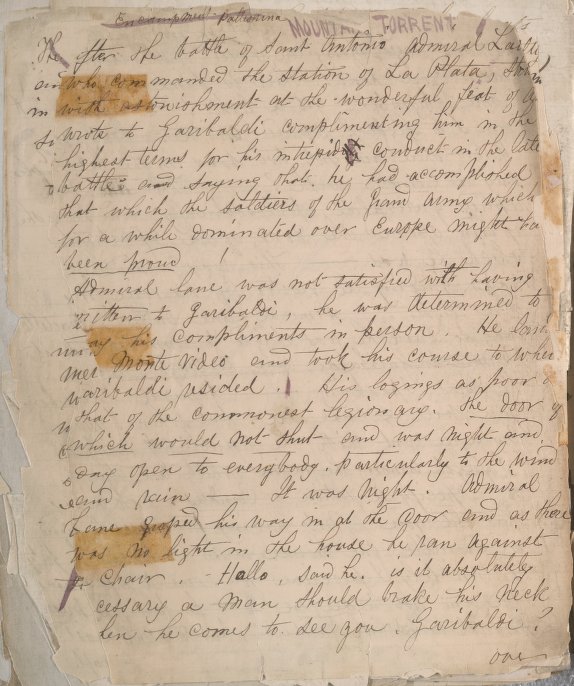 Encampment Patrona
MOUNTAIN TORRENT
The after the battle of Sant Antonio Admiral
who commanded the station of La Plata,
in with astonishment at the wonderful feat of
wrote to Garibaldi complimenting him in the
highest terms for his intrepid conduct in the late
battle and saying that he had accomplished
that which the soldiers of the grand army which
for a while dominated over Europe might ha
been proud !
Admiral lane was not satisfied with having
ritten to Garibaldi, he was determined to
ay his compliments in person. He
Monte Video and took his course to wher
aribaldi resided. His logings as poor
that of the commonest legionary. The door of
which would not shut and was night and
day open to everybody. particularly to the wind
and rain — It was Night. Admiral
Lane groped his way in at the door and as there
was no light in the house he ran against
Chair. Hallo, said he. is it absolutely
cessary a man should brake his neck
hen he comes to see you. Garibaldi?
over